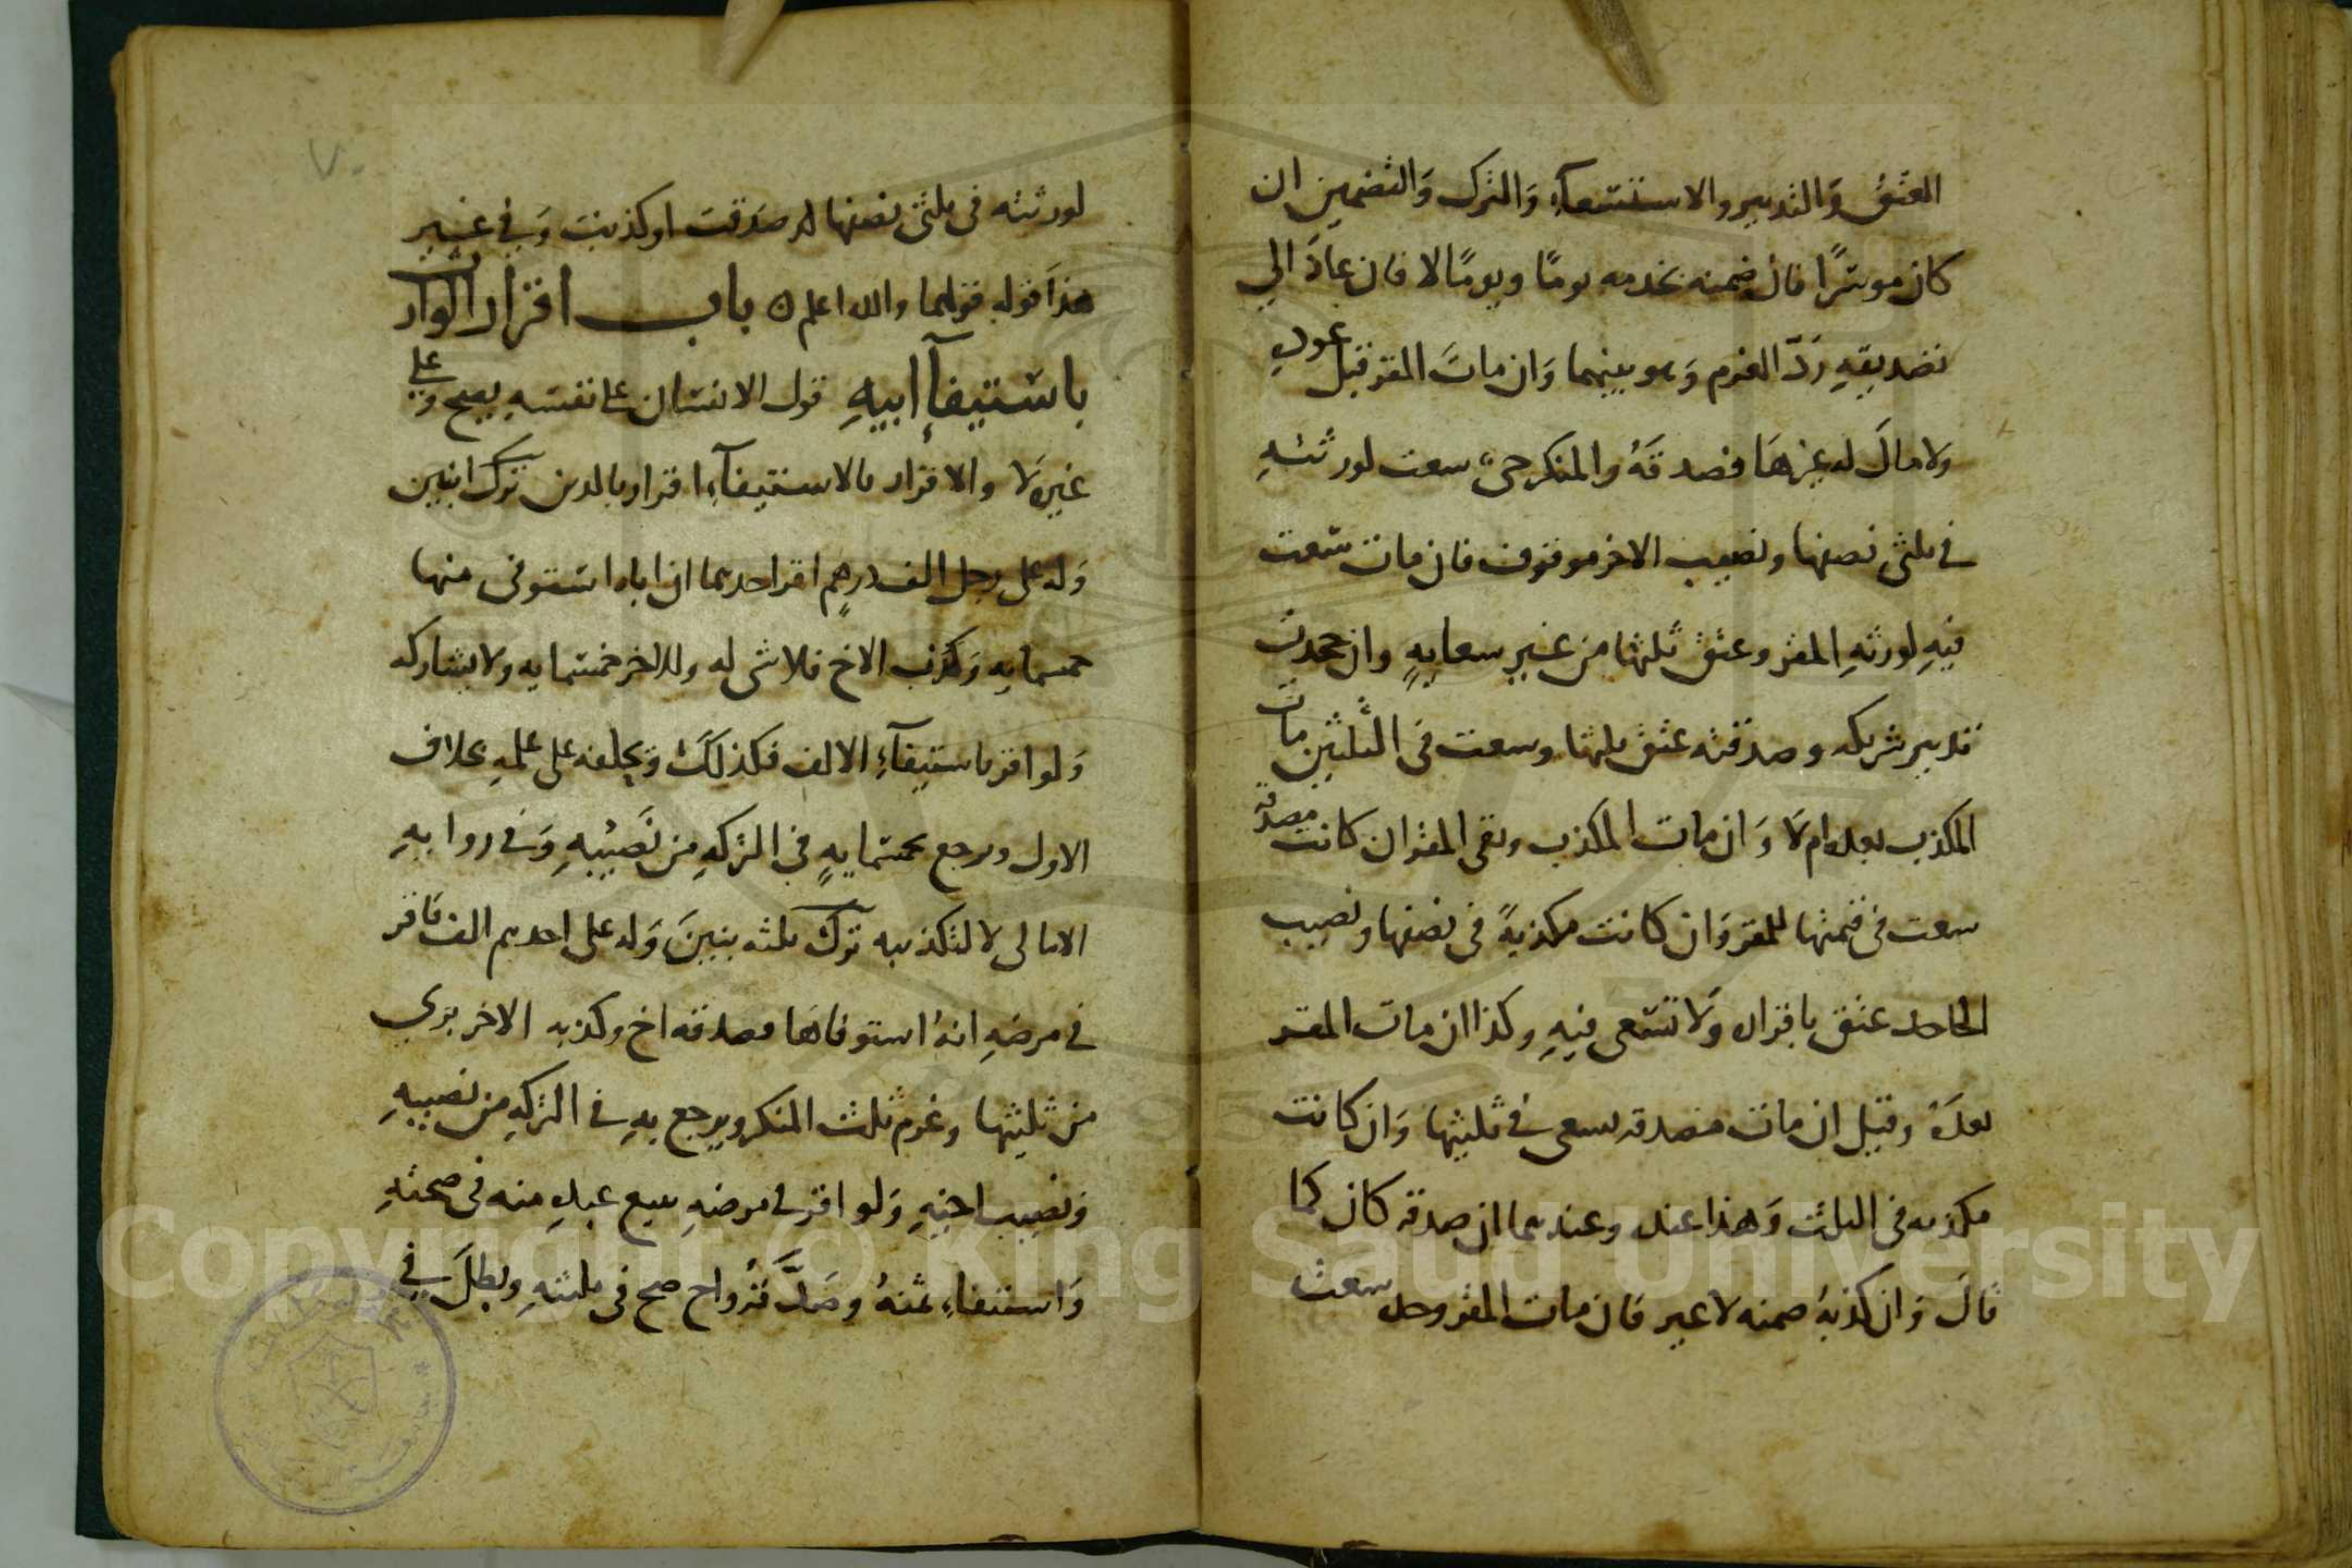 العتق والتدبير والاستسعاء والترك والتضمين ان
كان موسرًا فان ضمنه تخدمه يومًا ويومًا لا فان عاد الي
تصديقه ردّ الغرم وهو بينهما وان مات المقر قبل عوده
ولا مال له غيرها فصدقة والمنكر حي سعت لورثته
في ثلثي نصفها ونصيب الاخر موقوف فان مات سعت
فيه لورثه المقر وعتق ثلثها من غير سعايه وان جحدت
تدبير شريكه وصدقته عتق ثلثها وسعت في الثلثين مات
المكذب بعده ام لا وان مات المكذب وبقي المقر ان كانت مصدقة
سعت في قيمتها للمقر وان كانت مكذبة في نصفها ونصيب
الجاحد عتق باقراره ولا تسعى فيه وكذا ان مات المقر
بعده وقيل ان مات مصدقة يسعى في ثلثيها وان كانت
مكذبه في الثلث وهذا عنده وعندهما ان صدقه كان كما
قال وان كذبه ضمنه لا غير فان مات المقر وحده سعت
لورثته في ثلثي نصفها له صدقت او كذبت وفي غير
هذا قوله قولهما والله اعلم ه باب اقرار الوارث
باستيفاء ابيه قول الانسان على نفسه يصح وعلى
غيره لا والاقرار بالاستيفاء اقرار بالدين ترك ابنين
وله على رجل الف درهم اقر احدهما ان اباه استوفى منها
خمسمايه وكذب الاخ فلا شى له وللاخر خمسمايه ولا يشاركه
ولو اقر باستيفاء الالف فكذلك ويحلفه على علمه بخلاف
الاول ويرجع بخمسمايه في التركه من نصيبه وفي روايه
الامالى لا لتكذيبه ترك ثلثه بنين وله على احدهم الف فاقر
في مرضه انه استوفاها فصدقه اخ وكذبه الاخر بري
من ثلثيها وغرم ثلث المنكر ويرجع به في التركه من نصيبه
ونصيب اخيه ولو اقر في مرضه ببيع عبده منه في صحته
واستيفاء ثمنه وصدّقه واح صح في ثلثيه وبطل في
Copyright © King Saud University